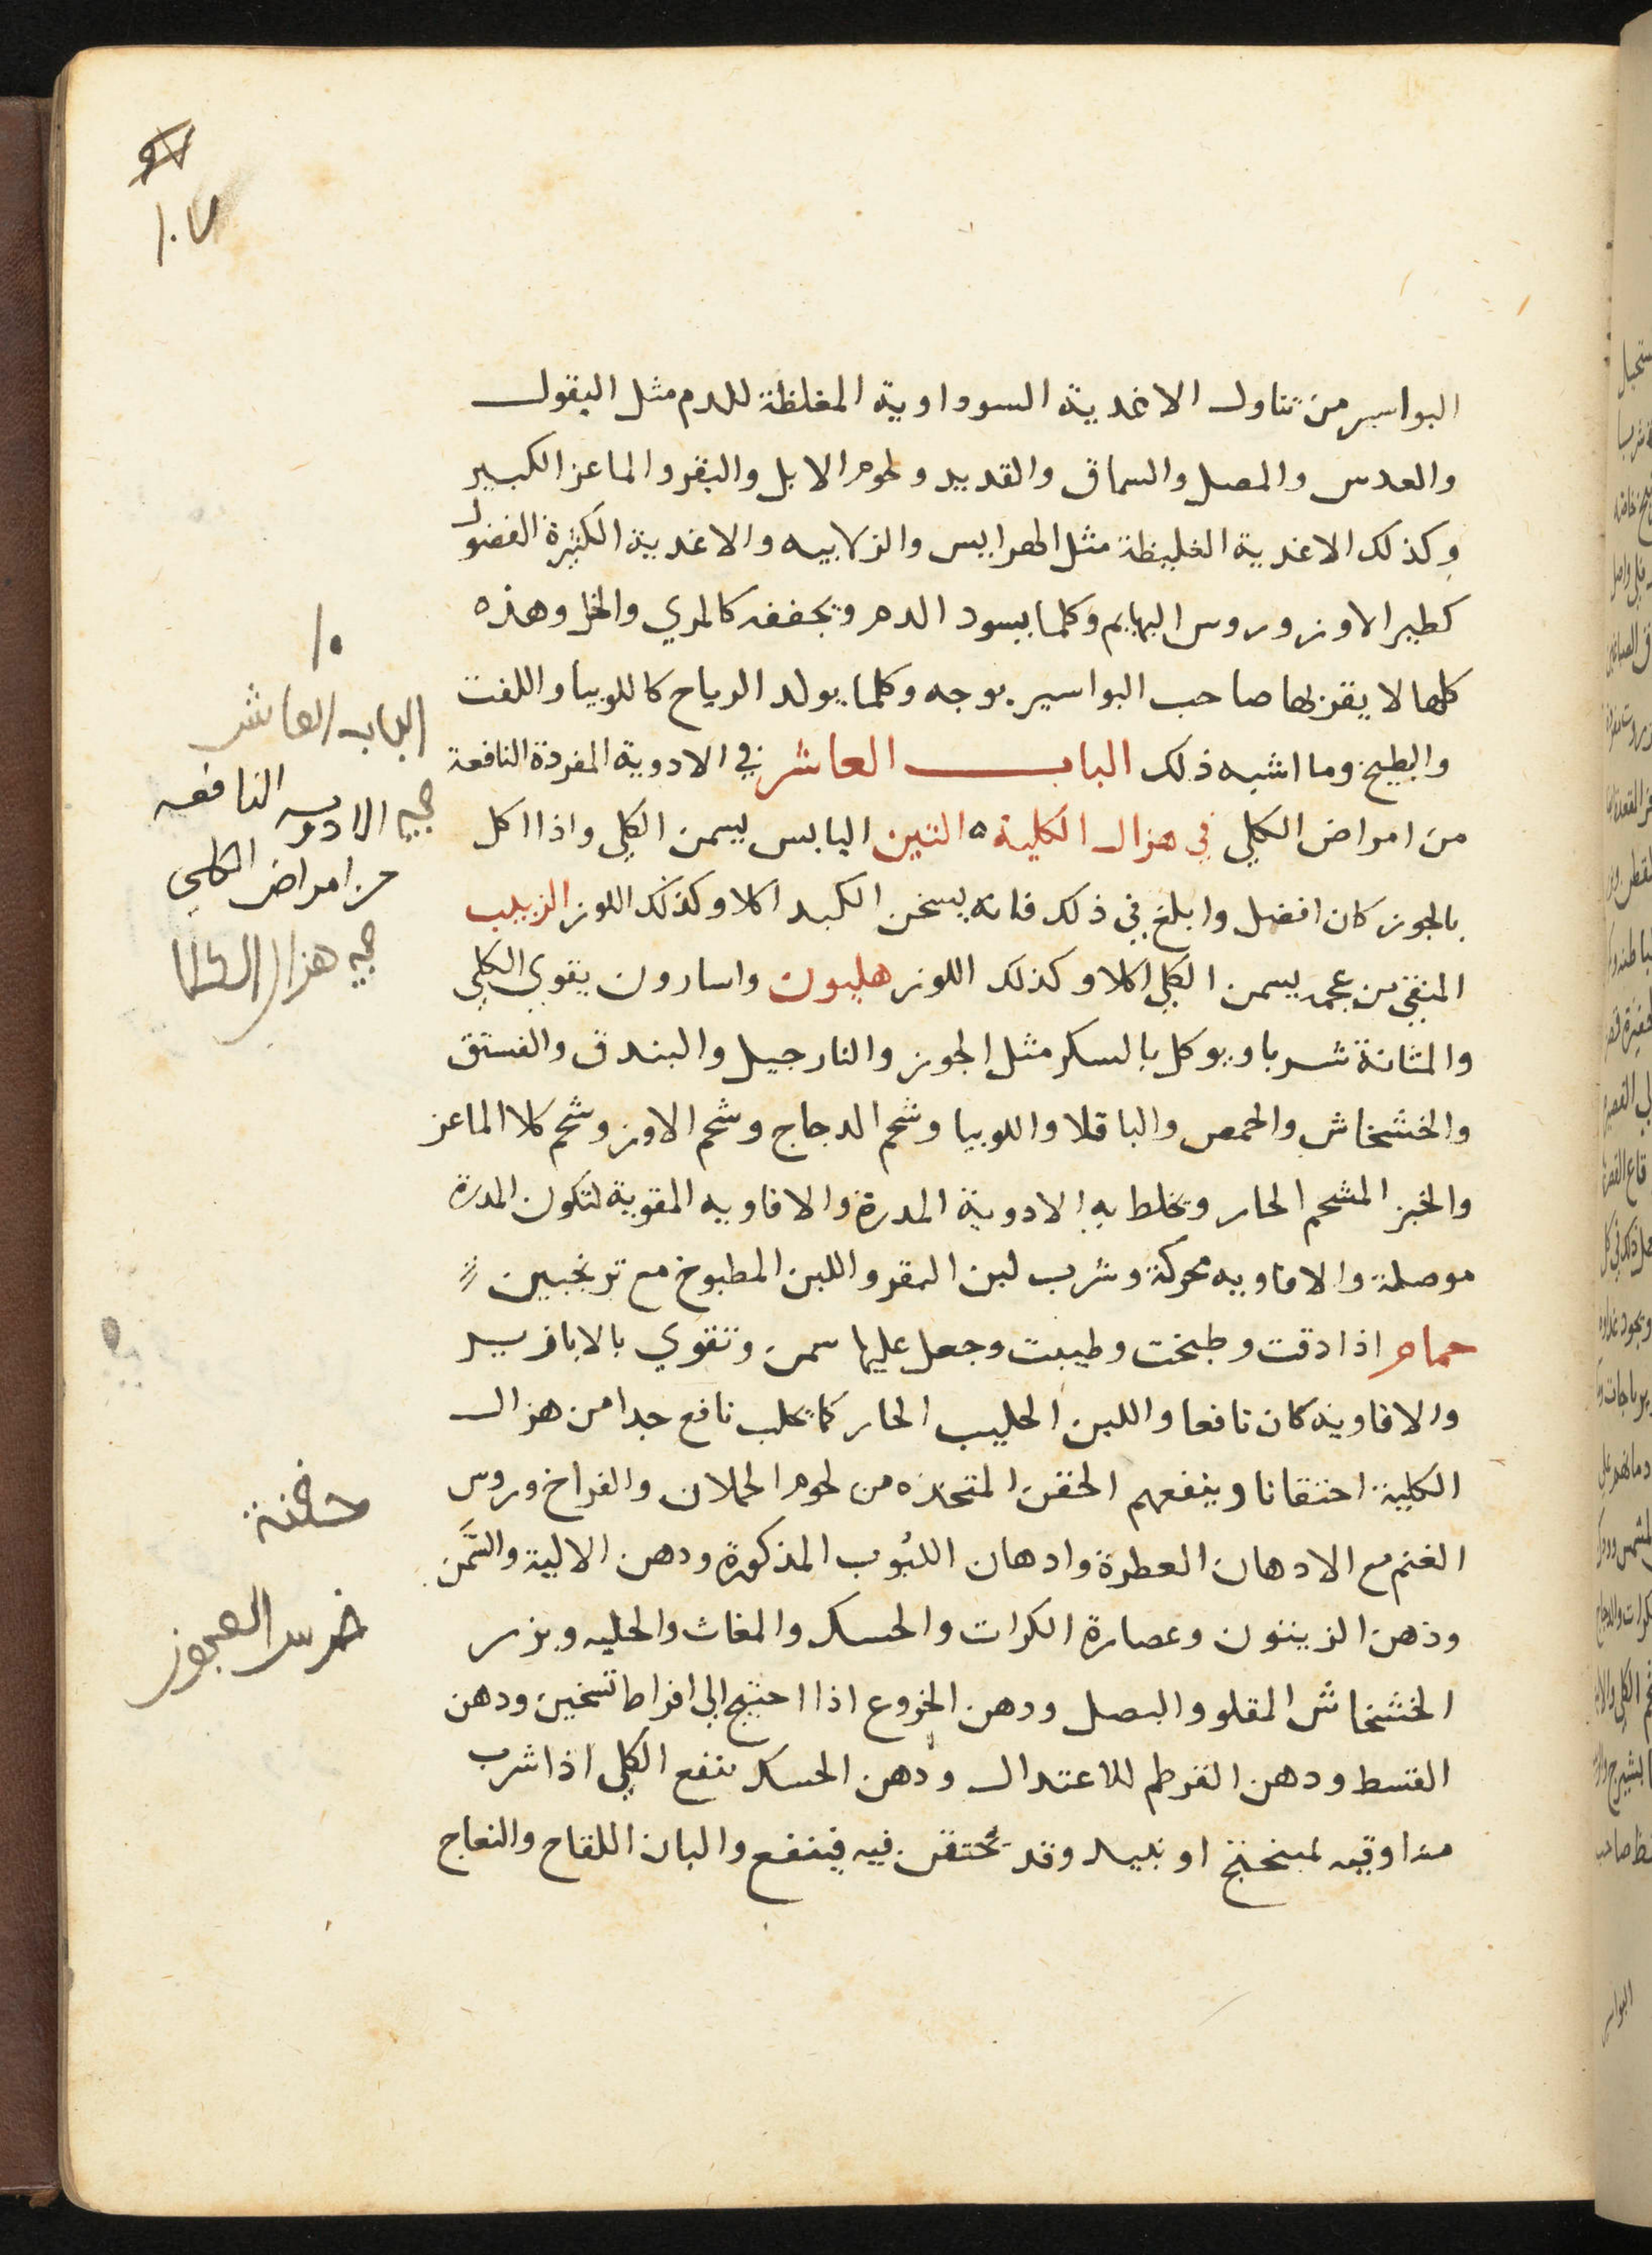 ٩٧
١٠٧
البواسير من تناول الاغدية السوداوية المغلظة للدم مثل البقول
والعدس والمصل والسماق والقديد ولحوم الابل والبقر والماعز الكبير
وكذلك الاغدية الغليظة مثل الهرايس والزلابيه والاغدية الكثيرة الفضول
كطير الاوز وروس البهايم وكلما يسود الدم ويجففه كالمري والخل وهذه
كلها لا يقربها صاحب البواسير بوجه وكلما يولد الرياح كاللوبيا واللفت
والبطيخ وما اشبه ذلك الباب العاشر في الادوية المفردة النافعة
من امراض الكلي في هزال الكلية ه التين اليابس يسمن الكلي واذا اكل
بالجوز كان افضل وابلغ في ذلك فانه يسخن الكبد اكلا وكذلك اللوز الزبيب
المنقي من عجمه يسمن الكلي اكلا وكذلك اللوز هليون واسارون يقوي الكلي
والمثانة شربا ويوكل بالسكر مثل الجوز والنارجيل والبندق والفستق
والخشخاش والحمص والباقلا واللوبيا وشحم الدجاج وشحم الاوز وشحم كلا الماعز
والخبز المشحم الحار وتخلط به الادوية المدرة والافاويه المقوية لتكون المدرة
موصلة والافاويه محركة وشرب لبن البقر واللبن المطبوخ مع ترنجبين
حمام اذا دقت وطبخت وطيبت وجعل عليها سمن وتقوي بالابازير
والافاويه كان نافعا واللبن الحليب الحار كما يحلب نافع جدا من هزال
الكلية احتقانا وينفعهم الحقن المتخذه من لحوم الحملان والفراخ وروس
الغنم مع الادهان العطرة وادهان اللبُوب المذكورة ودهن الالية والسَّمن
ودهن الزيتون وعصارة الكرات والحسك والمغاث والحلبه وبزر
الخشخاش المقلو والبصل ودهن الخروع اذا احتيج الي افراط تسخين ودهن
القسط ودهن القرطم للاعتدال ودهن الحسك ينفع الكلي اذا شرب
منه اوقيه بمبختج او نبيد وقد يحتقن فيه فينفع والبان اللقاح والنعاج
١٠
الباب العاشر
في الادويه النافعه
من امراض الكلي
في هزال الكلا
حقنة
ضرس العجوز